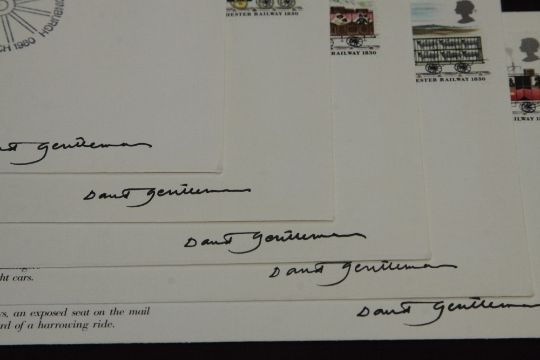 CH 1980
ESTER RAILWAY 1830
RAILWAY 1830
ESTER RAILWAY 1830
ILWAY 1
Gentleman
David Gentleman
David Gentleman
David Gentleman
ht cars.
David Gentleman
s, an exposed seat on the mail
rd of a harrowing ride.